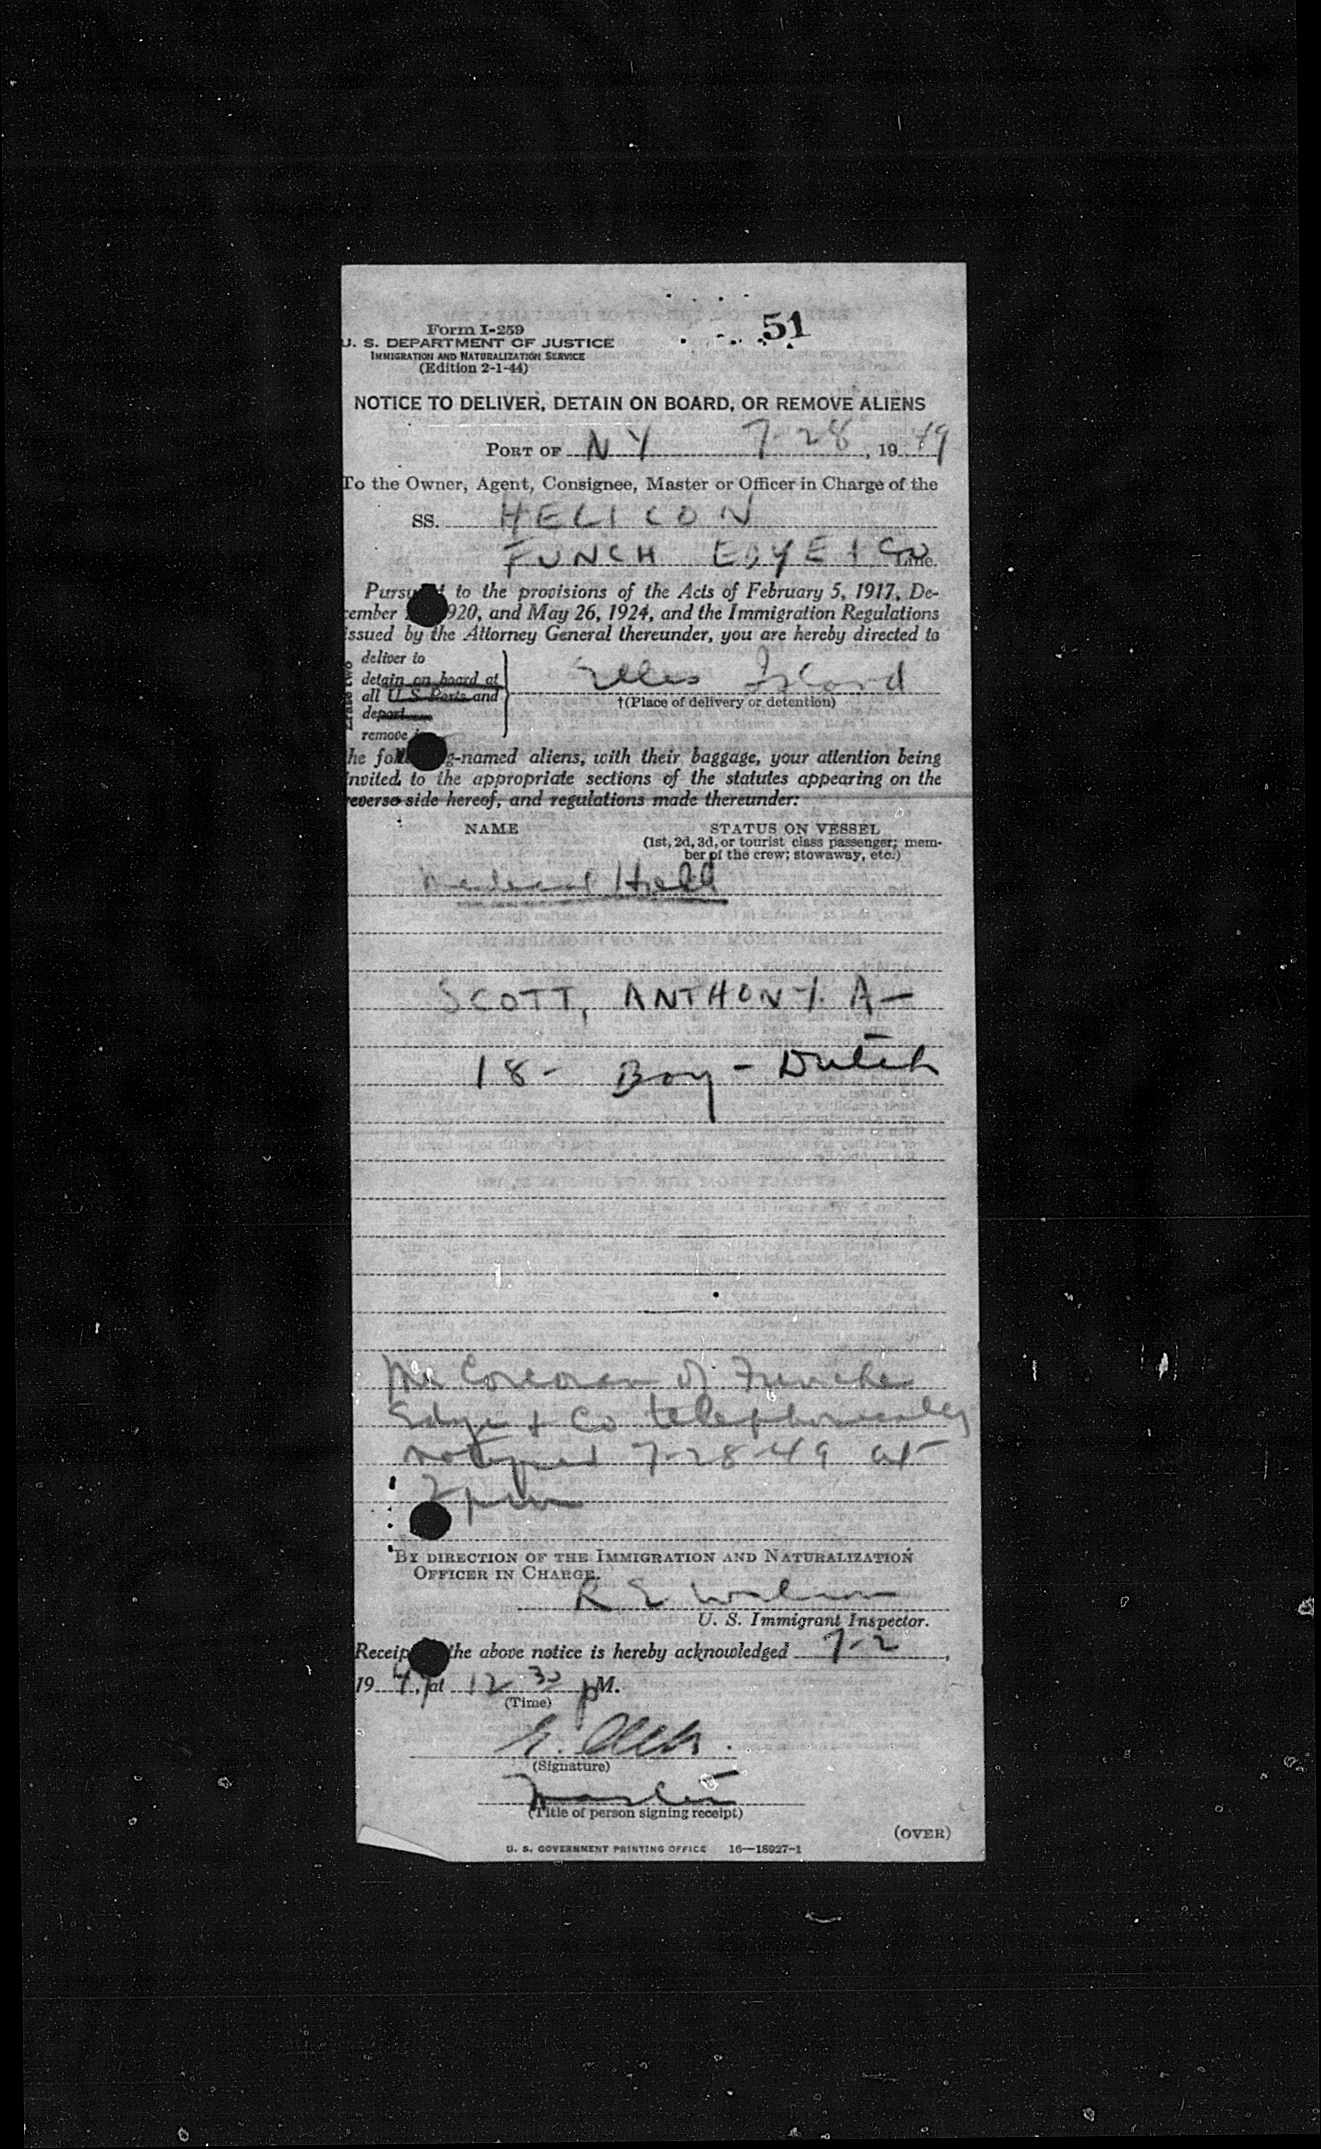 51
Form I-259
U. S. DEPARTMENT OF JUSTICE
IMMIGRATION AND NATURALIZATION SERVICE
(Edition 2-1-44)
NOTICE TO DELIVER, DETAIN ON BOARD, OR REMOVE ALIENS
PORT OF NY 7-28, 1949
To the Owner, Agent, Consignee, Master or Officer in Charge of the
SS. HELICON
FUNCH EDYE & Co Line.
to the provisions of the Acts of February 5, 1917, De-
cember 920, and May 26, 1924, and the Immigration Regulations
issued by the Attorney General thereunder, you are hereby directed to
deliver to
detain on board at
all U. S. Ports and
depart
remove
Ellis Island
†(Place of delivery or detention)
the -named aliens, with their baggage, your attention being
invited to the appropriate sections of the statutes appearing on the
reverse side hereof, and regulations made thereunder:
NAME STATUS ON VESSEL
(1st, 2d, 3d, or tourist class passenger; mem-
ber of the crew; stowaway, etc.)
Medical Hold
SCOTT, ANTHONY. A-
18- Boy - Dutch
Mr Corcoran of Funche
Edye & Co telephonically
notified 7-28-49 at
2 pm
BY DIRECTION OF THE IMMIGRATION AND NATURALIZATION
OFFICER IN CHARGE.
R E Wilson
U. S. Immigrant Inspector.
the above notice is hereby acknowledged 7-2,
19 4, at 12 30 pM.
(Time)
(Signature)
Master
(Title of person signing receipt)
(OVER)
U. S. GOVERNMENT PRINTING OFFICE 16—18927-1